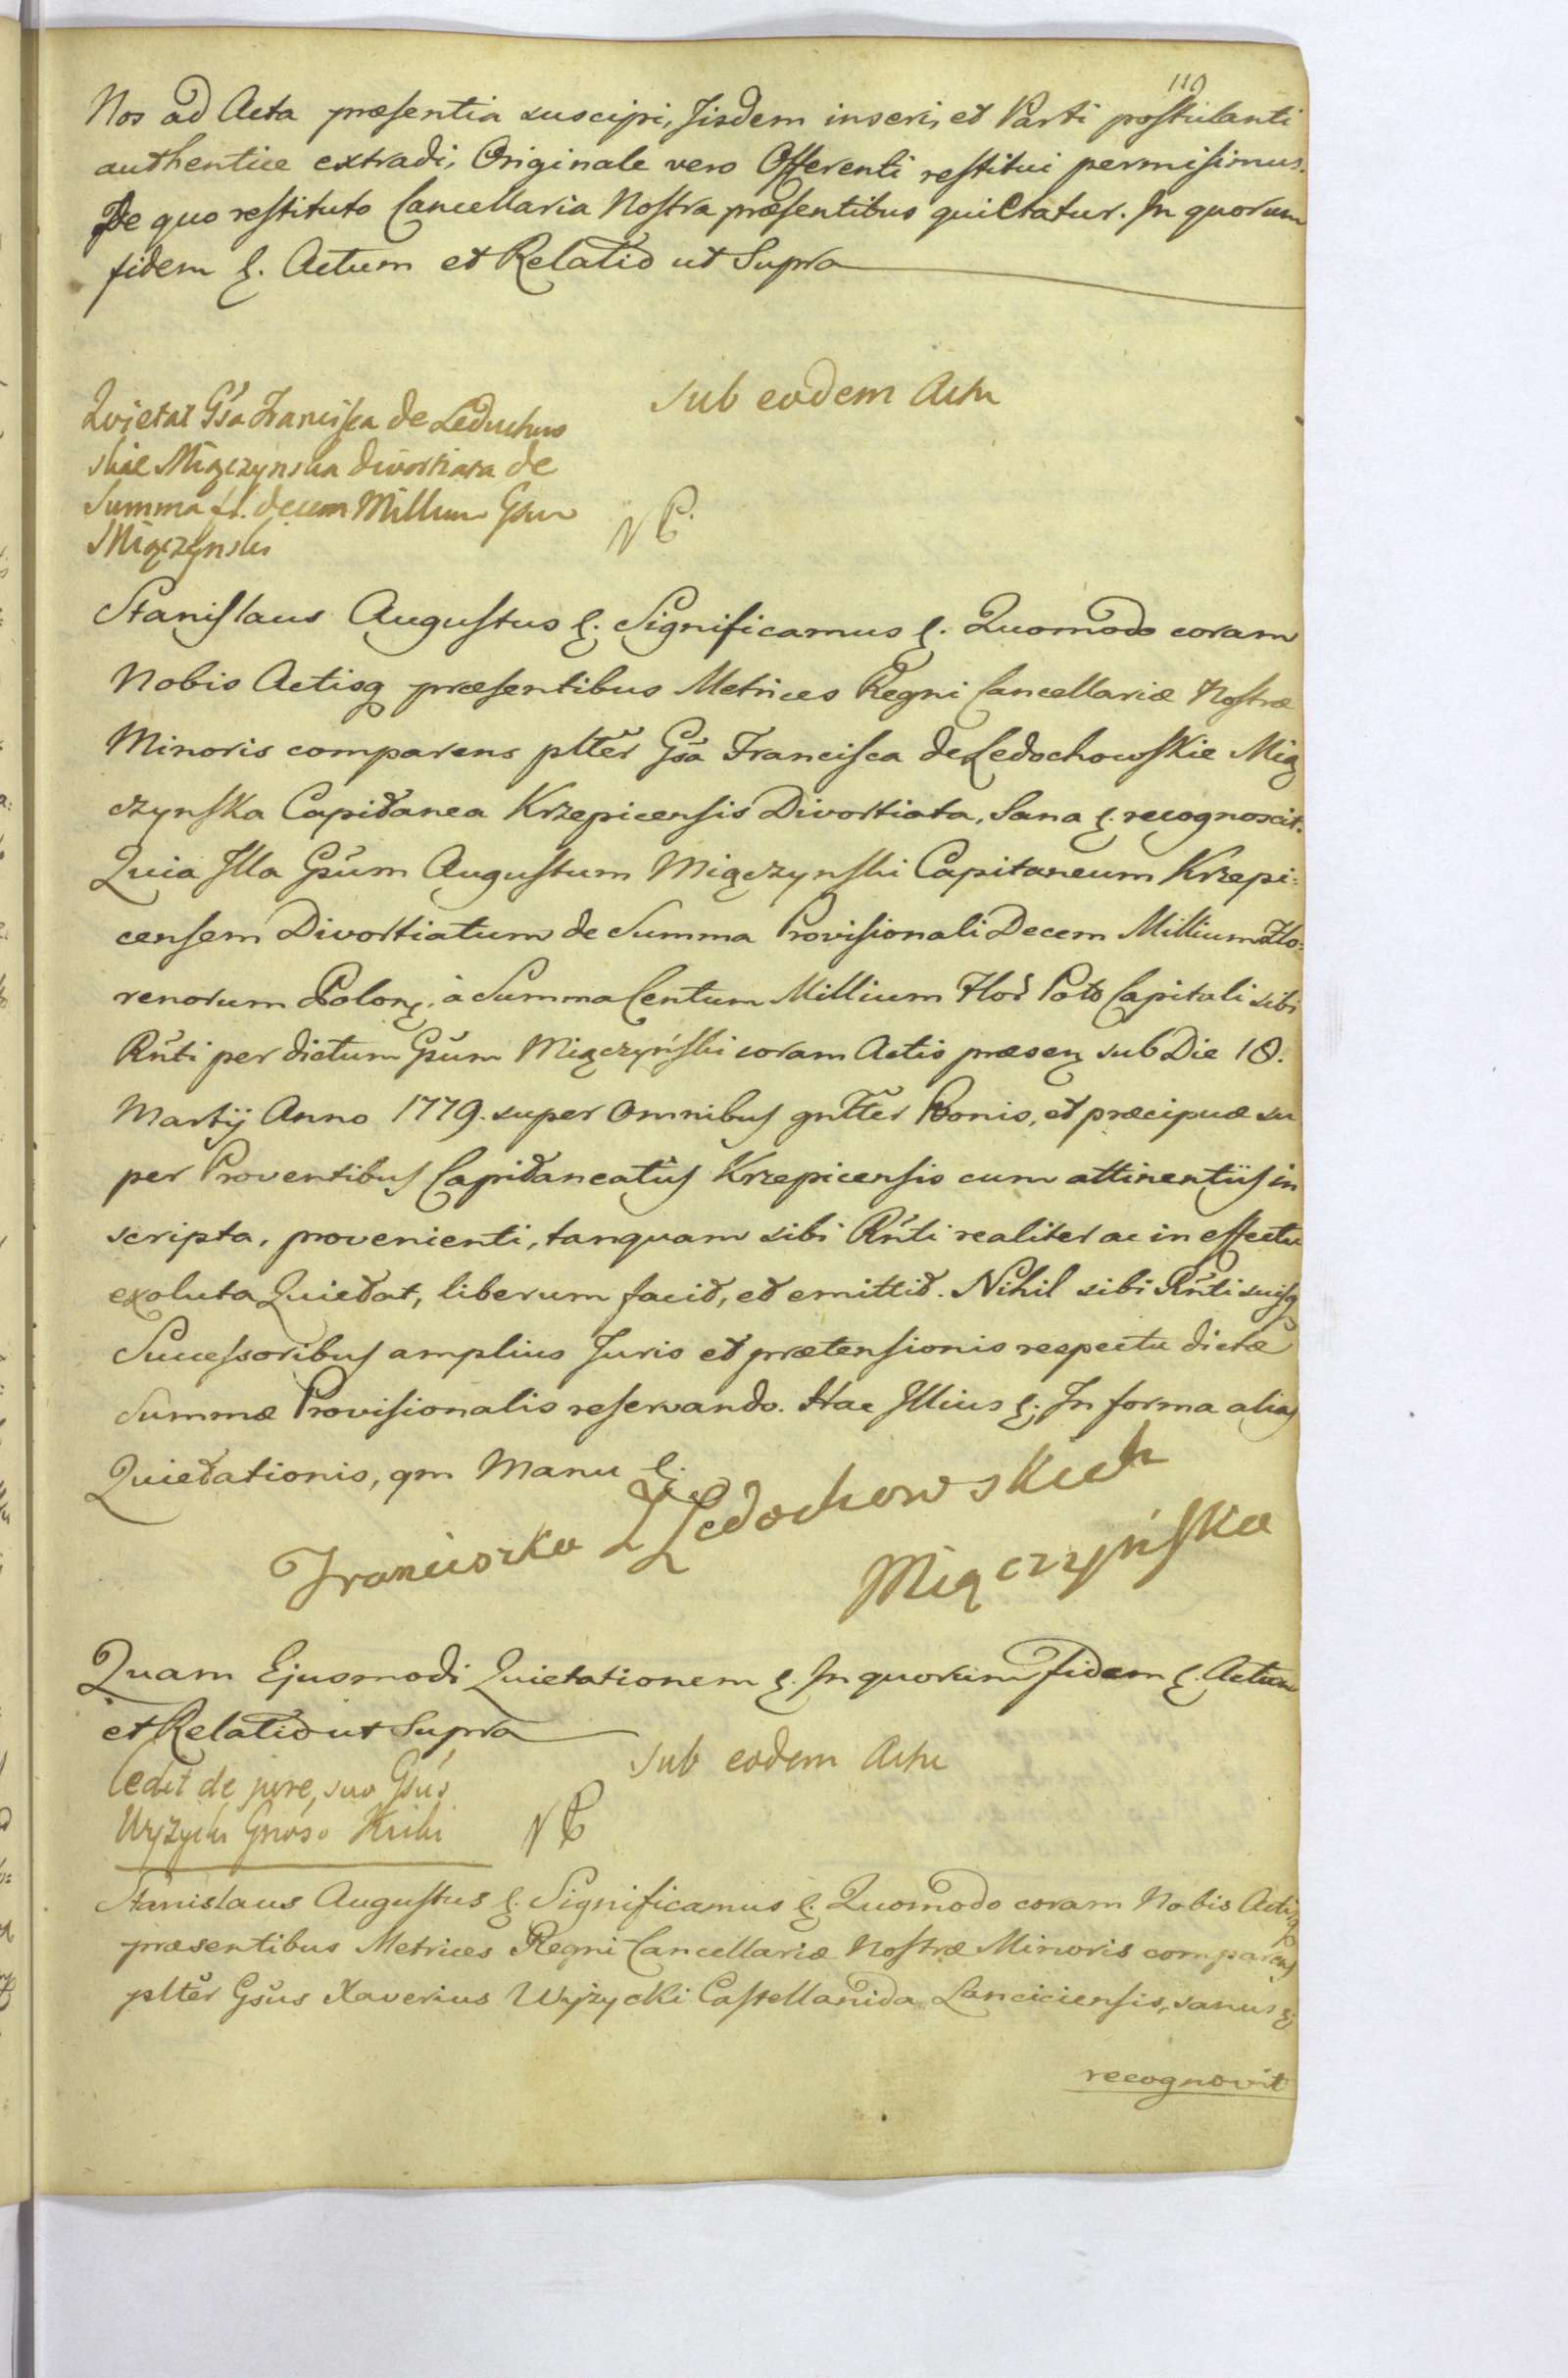 110
Nos ad Acta præsentia suscipi, Jisdem inseri, et Parti postulanti
authentice extradi, Originale vero Offerenti restitui permisimus.
De quo restituto Cancellaria Nostra præsentibus quittatur. In quorum
fidem &. Actum et Relatio ut Supra
Sub eodem Actu
Qvietat Gsa Francisca de Leduchow
skie Miączynska divortiata de
Summa fl. decem Millium Gsum
Miączynski
NP.
Stanislaus Augustus &. Significamus &. Quomodo coram
Nobis Actisq præsentibus Metrices Regni Cancellariæ Nostræ
Minoris comparens pltěr Gsa Francisca de Ledochowskie Mią
czynska Capitanea Krzepicensis Divortiata, Sana &. recognoscit.
Quia Illa Gsum Augustum Miączynski Capitaneum Krzepi:
censem Divortiatum de Summa Provisionali Decem Millium Flo:
renorum Polon, à Summa Centum Millium Flor Polo Capitali sibi
Rnti per dictum Gsum Miączyński coram Actis præsen sub Die 18.
Martij Anno 1779. super Omnibus gntter Bonis, et præcipuæ su
per Proventibus Capitaneatûs Krzepicensis cum attinentijs in
scripta, provenienti, tanquam sibi Rnti realiter ac in effectu
exoluta Quietat, liberum facit, et emittit. Nihil sibi Rnti suisq
Successoribus amplius Juris et prætensionis respectu dictæ
Summæ Provisionalis reservando. Hac Illius &. In forma alias
Quietationis, qm Manu &.
Franciszka Z Ledochowskich
Miączyńska
Quam Ejusmodi Quietationem &. In quorum fidem &. Actum
et Relatio ut Supra
Sub eodem Actu
Cedit de jure suo Gsus
Wyżycki
NP
Stanislaus Augustus &. Significamus &. Quomodo coram Nobis Actisq
præsentibus Metrices Regni Cancellariæ Nostræ Minoris comparens
pltěr Gsus Xaverius Wyżycki Castellanida Lanciciensis, sanus &
recognovit